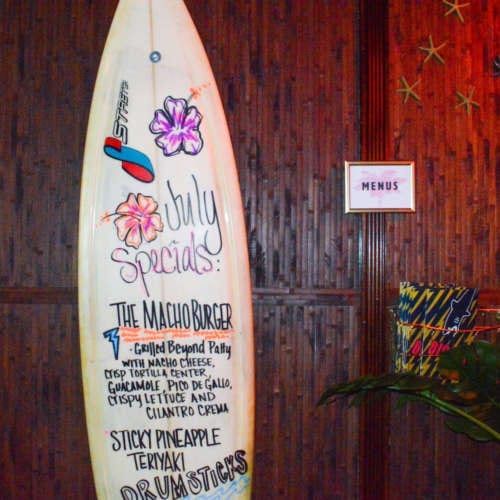 STRETCH
July
Specials:
THE MACHO BURGER
- Grilled Beyond Patty
WITH NACHO CHEESE,
CRISP TORTILLA CENTER,
GUACAMOLE, PICO DE GALLO,
CRISPY LETTUCE AND
CILANTRO CREMA
STICKY PINEAPPLE
TERIYAKI
DRUMSTICKS
MENUS